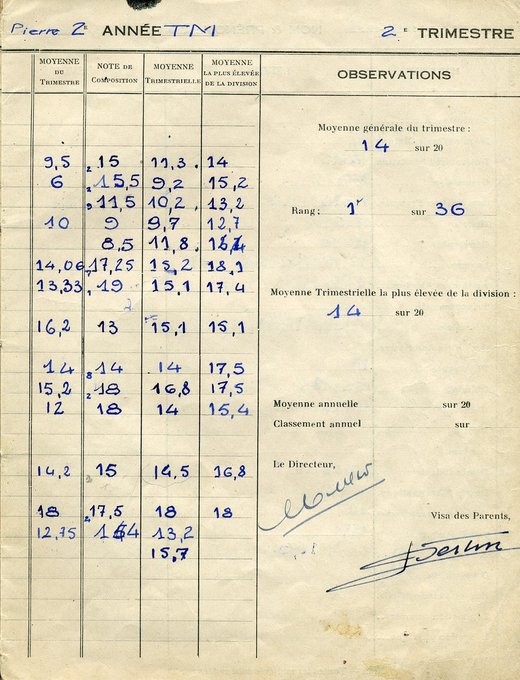 Pierre 2e ANNÉE TM 2e TRIMESTRE
MOYENNE DU TRIMESTRE NOTE DE COMPOSITION MOYENNE TRIMESTRIELLE MOYENNE LA PLUS ÉLEVÉE DE LA DIVISION OBSERVATIONS
Moyenne générale du trimestre :
14 sur 20
9,5 15 11,3 14
6 15,5 9,2 15,2
11,5 10,2 13,2
Rang : 1r sur 36
10 9 9,7 12,7
8,5 11,8
14,06 17,25 15,2 18,1
13,33 19 15,1 17,4
Moyenne Trimestrielle la plus élevée de la division :
14 sur 20
16,2 13 15,1 15,1
14 14 14 17,5
15,2 18 16,8 17,5
12 18 14 15,4
Moyenne annuelle sur 20
Classement annuel sur
Le Directeur,
14,2 15 14,5 16,8
18 17,5 18 18
Visa des Parents,
12,75 14 13,2
15,7